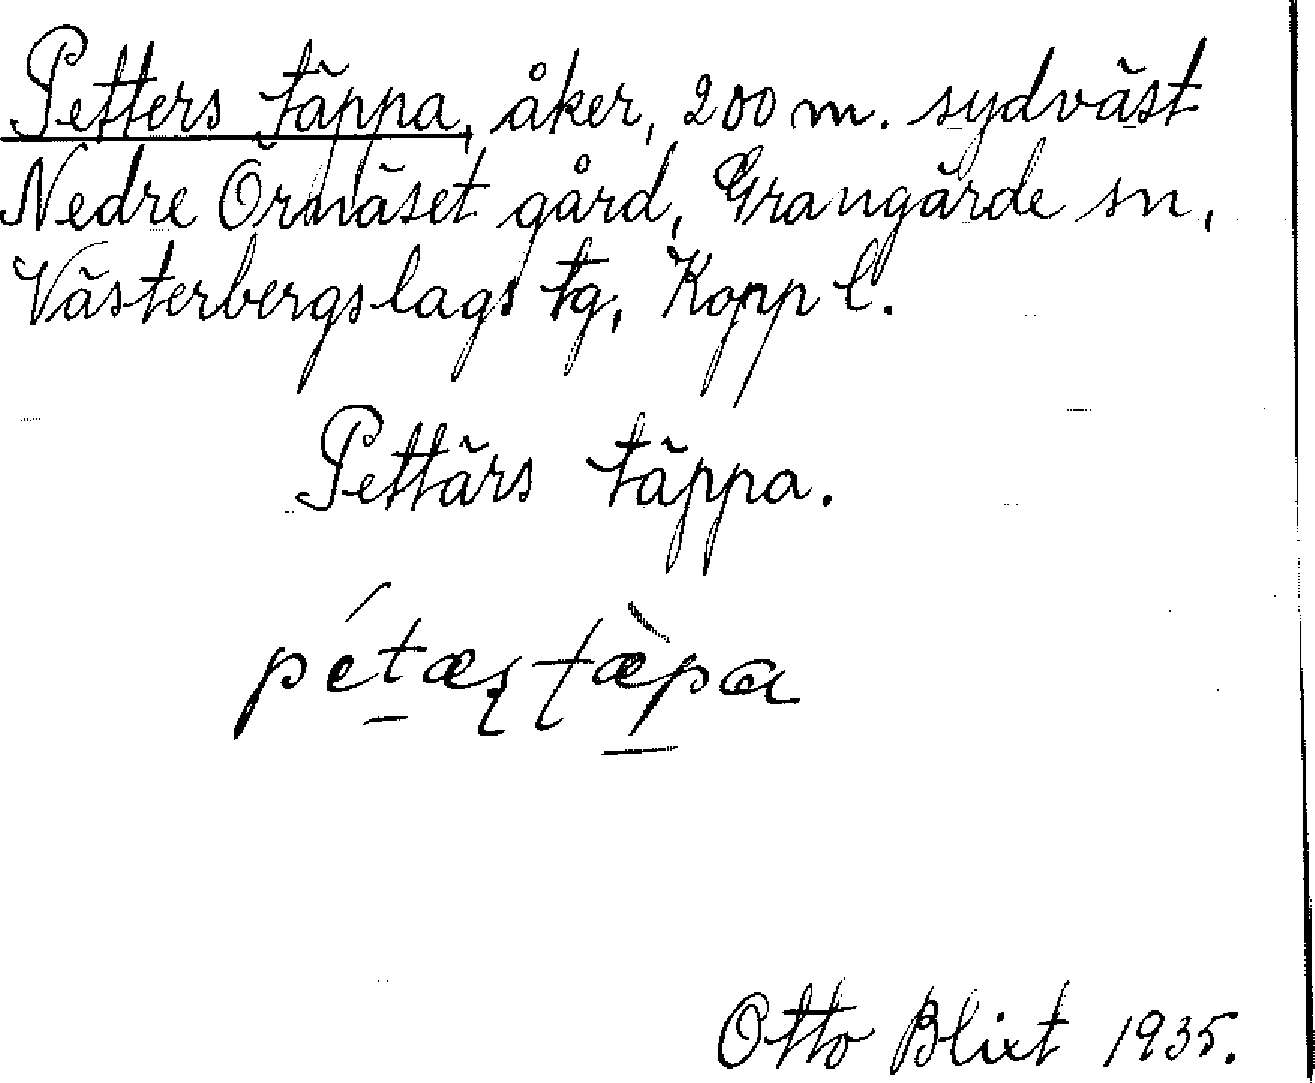 Petters täppa, åker, 200 m. sydväst
Nedre Örnäset gård, Grangärde sn,
Västerbergslags tg, Kopp l.
Pettärs täppa.
pétæʂ tæ̀pa
Otto Blixt 1935.